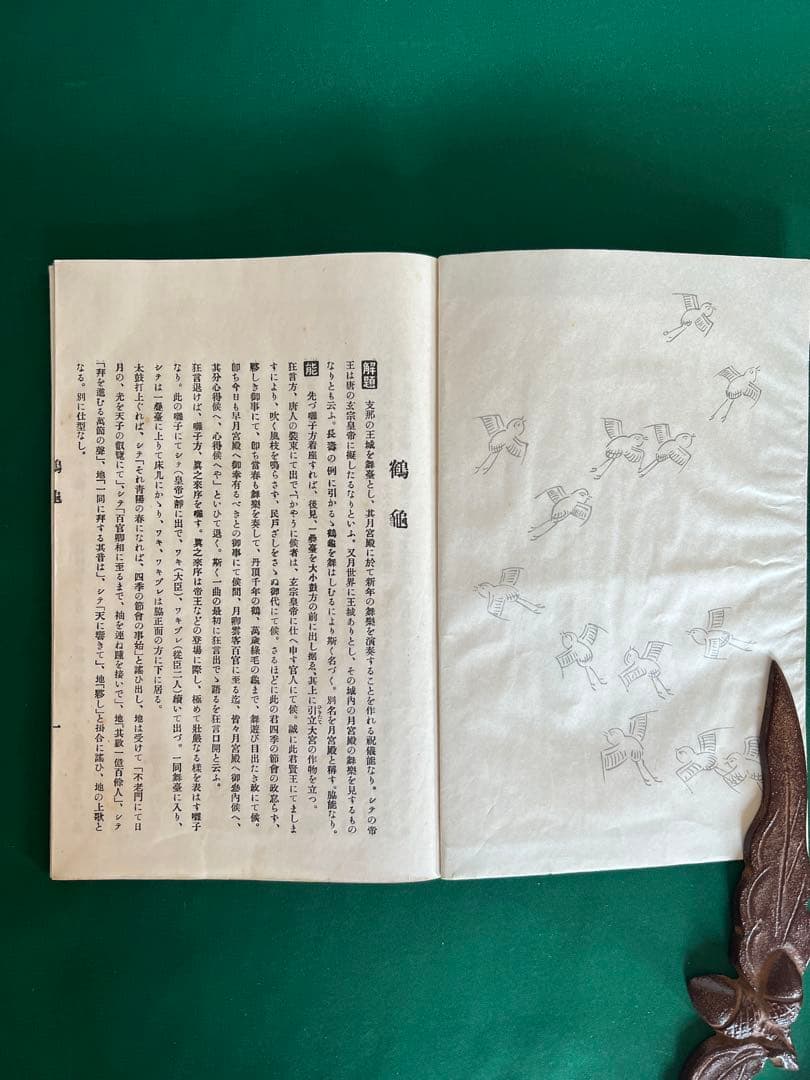 鶴龜
解題 支那の王城を舞臺とし、其月宮殿に於て新年の舞樂を演奏することを作れる祝儀能なり。シテの帝
王は唐の玄宗皇帝に擬したるなりといふ。又月世界に王城ありとし、その城內の月宮殿の舞樂を見するもの
なりとも云ふ。長壽の例に引かるゝ鶴龜を舞はしむるにより斯く名づく。別名を月宮殿と稱す。脇能なり。
能 先づ囃子方着座すれば、後見、一疊臺を大小鼓方の前に出し据ゑ、其上に引立大宮の作物を立つ。
狂言方、唐人の裝束にて出で「かやうに候者は、玄宗皇帝に仕へ申す官人にて候。誠に此君賢王にてましま
すにより、吹く風枝を鳴らさず、民戶ざしをさゝぬ御代にて候。さるほどに此の君四季の節會の政怠らず、
夥しき御事にて、卽ち當春も舞樂を奏して、丹頂千年の鶴、萬歲綠毛の龜まで、舞遊び目出たき政にて候。
卽ち今日も早月宮殿へ御幸有るべきとの御事にて候間、月卿雲客百官に至る迄、皆々月宮殿へ御參內候へ、
其分心得候へ、心得候へや」といひて退く。斯く一曲の最初に狂言出でゝ語るを狂言口開と云ふ。
狂言退けば、囃子方、眞之來序を囃す。眞之來序は帝王などの登場に際し、極めて壯嚴なる樣を表はす囃子
なり。此の囃子にてシテ(皇帝)靜に出で、ワキ(大臣)、ワキヅレ(從臣二人)續いて出づ。一同舞臺に入り、
シテは一疊臺に上りて床几にかゝり、ワキ、ワキヅレは脇正面の方に下に居る。
太鼓打上ぐれば、シテ「それ靑陽の春になれば、四季の節會の事始」と謠ひ出し、地は受けて「不老門にて日
月の、光を天子の叡覽にて」、シテ「百官卿相に至るまで、袖を連ね踵を接いで」、地「其數一億百餘人」、シテ
「拜を進むる萬箇の聲」、地「一同に拜する其音は」、シテ「天に響きて」、地「夥し」と掛合に謠ひ、地の上歌と
なる。別に仕型なし。
鶴龜
一